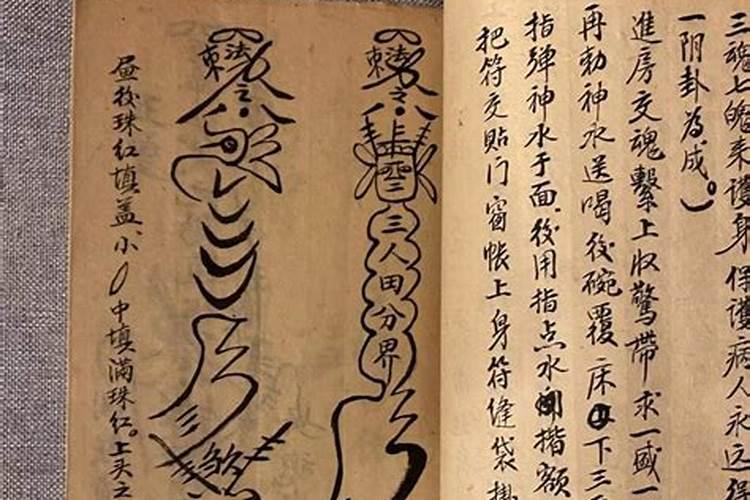 三魂七魄來護身保護病人永远
一阴卦為成。）
進房交魂繫上收驚帶求一盛一
再勅神水送喝後碗覆床下三
指弹神水于面.後用指点水揩额
把符交贴门窗帐上身符縫袋
勅法令
三人田分界
勅法令
昼後珠红填盖.小
中填滿珠红。上头之